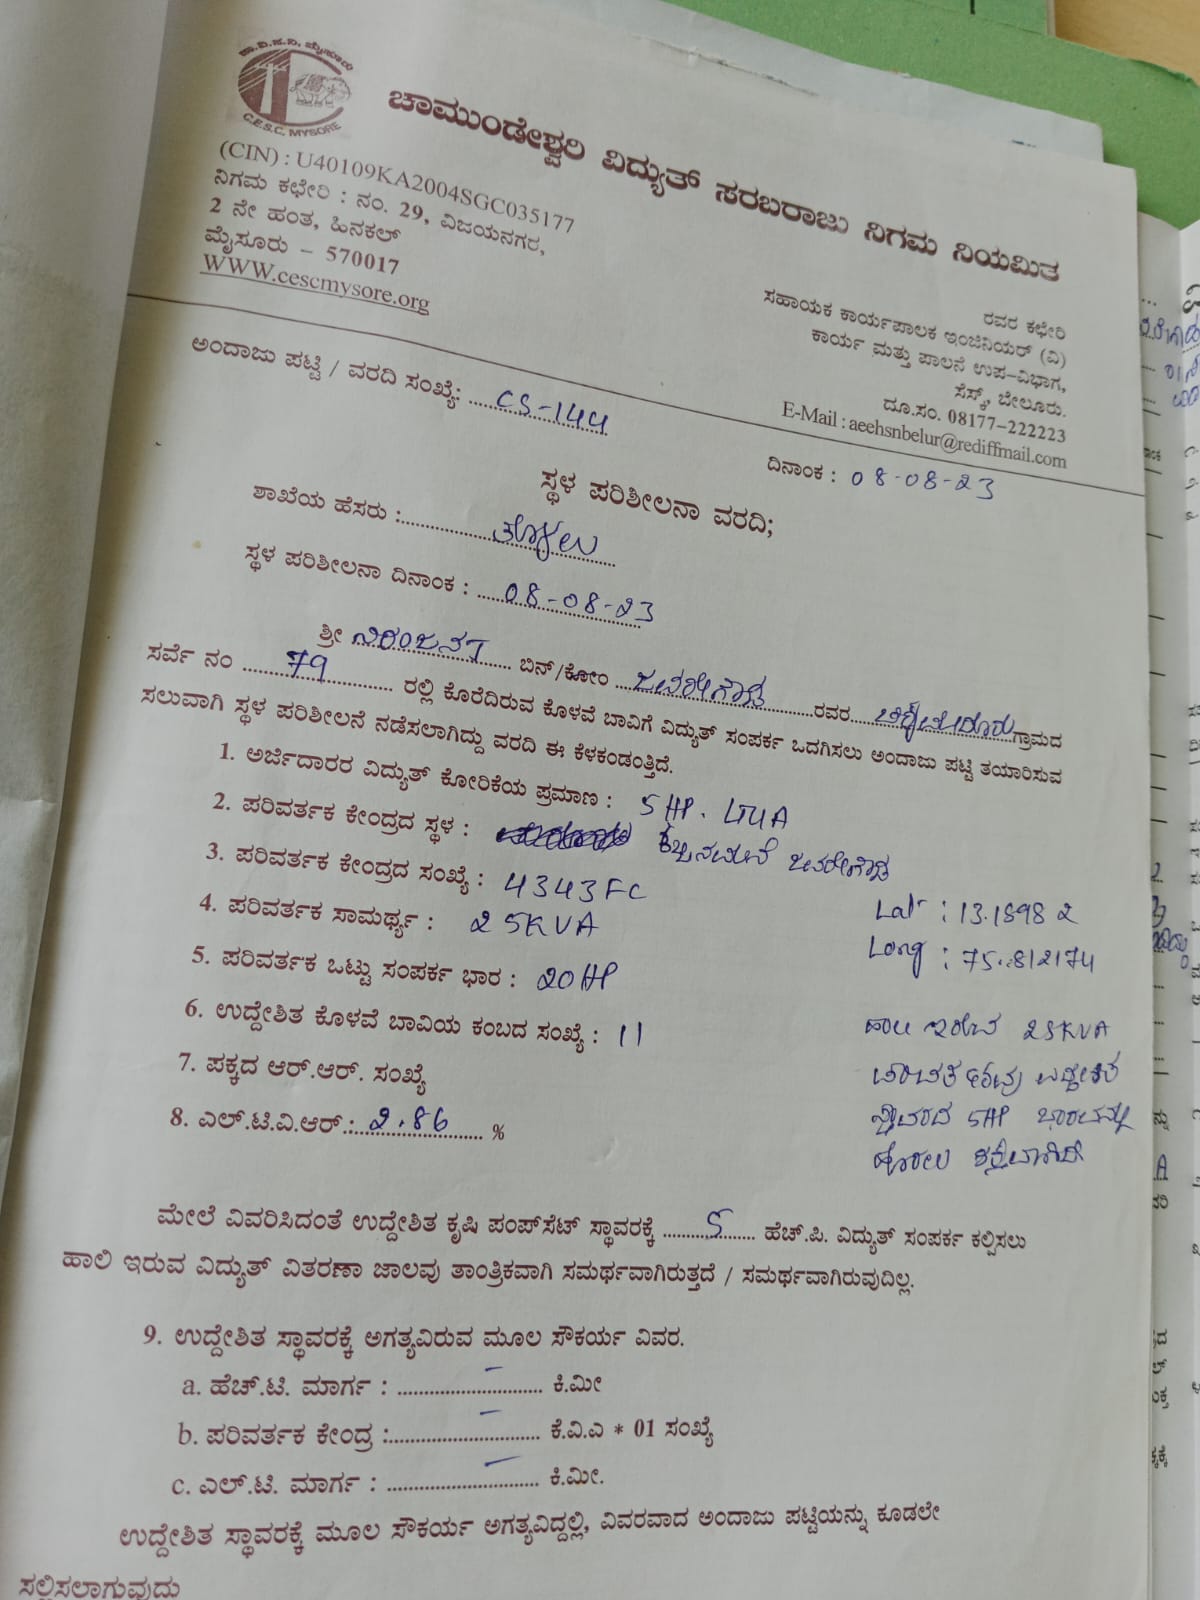 ಕಾ.ವಿ.ಸ.ನಿ. ಮೈಸೂರು
C.E.S.C. MYSORE
ಚಾಮುಂಡೇಶ್ವರಿ ವಿದ್ಯುತ್ ಸರಬರಾಜು ನಿಗಮ ನಿಯಮಿತ
(CIN) : U40109KA2004SGC035177
ನಿಗಮ ಕಛೇರಿ : ನಂ. 29, ವಿಜಯನಗರ,
2 ನೇ ಹಂತ, ಹಿನಕಲ್
ಮೈಸೂರು – 570017
WWW.cescmysore.org
ರವರ ಕಛೇರಿ
ಸಹಾಯಕ ಕಾರ್ಯಪಾಲಕ ಇಂಜಿನಿಯರ್ (ವಿ)
ಕಾರ್ಯ ಮತ್ತು ಪಾಲನೆ ಉಪ-ವಿಭಾಗ,
ಸೆಸ್ಕ್, ಬೇಲೂರು.
ದೂ.ಸಂ. 08177-222223
E-Mail : aeehsnbelur@rediffmail.com
ಅಂದಾಜು ಪಟ್ಟಿ / ವರದಿ ಸಂಖ್ಯೆ: CS-144
ದಿನಾಂಕ : 08-08-23
ಸ್ಥಳ ಪರಿಶೀಲನಾ ವರದಿ;
ಶಾಖೆಯ ಹೆಸರು : ತೊಳಲು
ಸ್ಥಳ ಪರಿಶೀಲನಾ ದಿನಾಂಕ : 08-08-23
ಶ್ರೀ ನಿರಂಜನ J ಬಿನ್/ಕೋಂ ಜವರೇಗೌಡ ರವರ ಗ್ರಾಮದ
ಸರ್ವೆ ನಂ 79 ರಲ್ಲಿ ಕೊರೆದಿರುವ ಕೊಳವೆ ಬಾವಿಗೆ ವಿದ್ಯುತ್ ಸಂಪರ್ಕ ಒದಗಿಸಲು ಅಂದಾಜು ಪಟ್ಟಿ ತಯಾರಿಸುವ
ಸಲುವಾಗಿ ಸ್ಥಳ ಪರಿಶೀಲನೆ ನಡೆಸಲಾಗಿದ್ದು ವರದಿ ಈ ಕೆಳಕಂಡಂತ್ತಿದೆ.
1. ಅರ್ಜಿದಾರರ ವಿದ್ಯುತ್ ಕೋರಿಕೆಯ ಪ್ರಮಾಣ : 5 HP. LT4A
2. ಪರಿವರ್ತಕ ಕೇಂದ್ರದ ಸ್ಥಳ : ಜವರೇಗೌಡ
3. ಪರಿವರ್ತಕ ಕೇಂದ್ರದ ಸಂಖ್ಯೆ : 4343FC
4. ಪರಿವರ್ತಕ ಸಾಮರ್ಥ್ಯ : 25KVA
Lat : 13.18982
5. ಪರಿವರ್ತಕ ಒಟ್ಟು ಸಂಪರ್ಕ ಭಾರ : 20HP
Long : 75.812174
6. ಉದ್ದೇಶಿತ ಕೊಳವೆ ಬಾವಿಯ ಕಂಬದ ಸಂಖ್ಯೆ : 11
7. ಪಕ್ಕದ ಆರ್.ಆರ್. ಸಂಖ್ಯೆ
8. ಎಲ್.ಟಿ.ವಿ.ಆರ್.: 2.86 %
ಹಾಲಿ ಇರುವ 25KVA
ಪರಿವರ್ತಕವು ಉದ್ದೇಶಿತ
ಸ್ಥಾವರದ 5HP ಭಾರವನ್ನು
ಹೊರಲು ಶಕ್ತವಾಗಿದೆ
ಮೇಲೆ ವಿವರಿಸಿದಂತೆ ಉದ್ದೇಶಿತ ಕೃಷಿ ಪಂಪ್‌ಸೆಟ್ ಸ್ಥಾವರಕ್ಕೆ 5 ಹೆಚ್.ಪಿ. ವಿದ್ಯುತ್ ಸಂಪರ್ಕ ಕಲ್ಪಿಸಲು
ಹಾಲಿ ಇರುವ ವಿದ್ಯುತ್ ವಿತರಣಾ ಜಾಲವು ತಾಂತ್ರಿಕವಾಗಿ ಸಮರ್ಥವಾಗಿರುತ್ತದೆ / ಸಮರ್ಥವಾಗಿರುವುದಿಲ್ಲ.
9. ಉದ್ದೇಶಿತ ಸ್ಥಾವರಕ್ಕೆ ಅಗತ್ಯವಿರುವ ಮೂಲ ಸೌಕರ್ಯ ವಿವರ.
a. ಹೆಚ್.ಟಿ. ಮಾರ್ಗ : – ಕಿ.ಮೀ
b. ಪರಿವರ್ತಕ ಕೇಂದ್ರ : – ಕೆ.ವಿ.ಎ * 01 ಸಂಖ್ಯೆ
c. ಎಲ್.ಟಿ. ಮಾರ್ಗ : – ಕಿ.ಮೀ.
ಉದ್ದೇಶಿತ ಸ್ಥಾವರಕ್ಕೆ ಮೂಲ ಸೌಕರ್ಯ ಅಗತ್ಯವಿದ್ದಲ್ಲಿ, ವಿವರವಾದ ಅಂದಾಜು ಪಟ್ಟಿಯನ್ನು ಕೂಡಲೇ
ಸಲ್ಲಿಸಲಾಗುವುದು